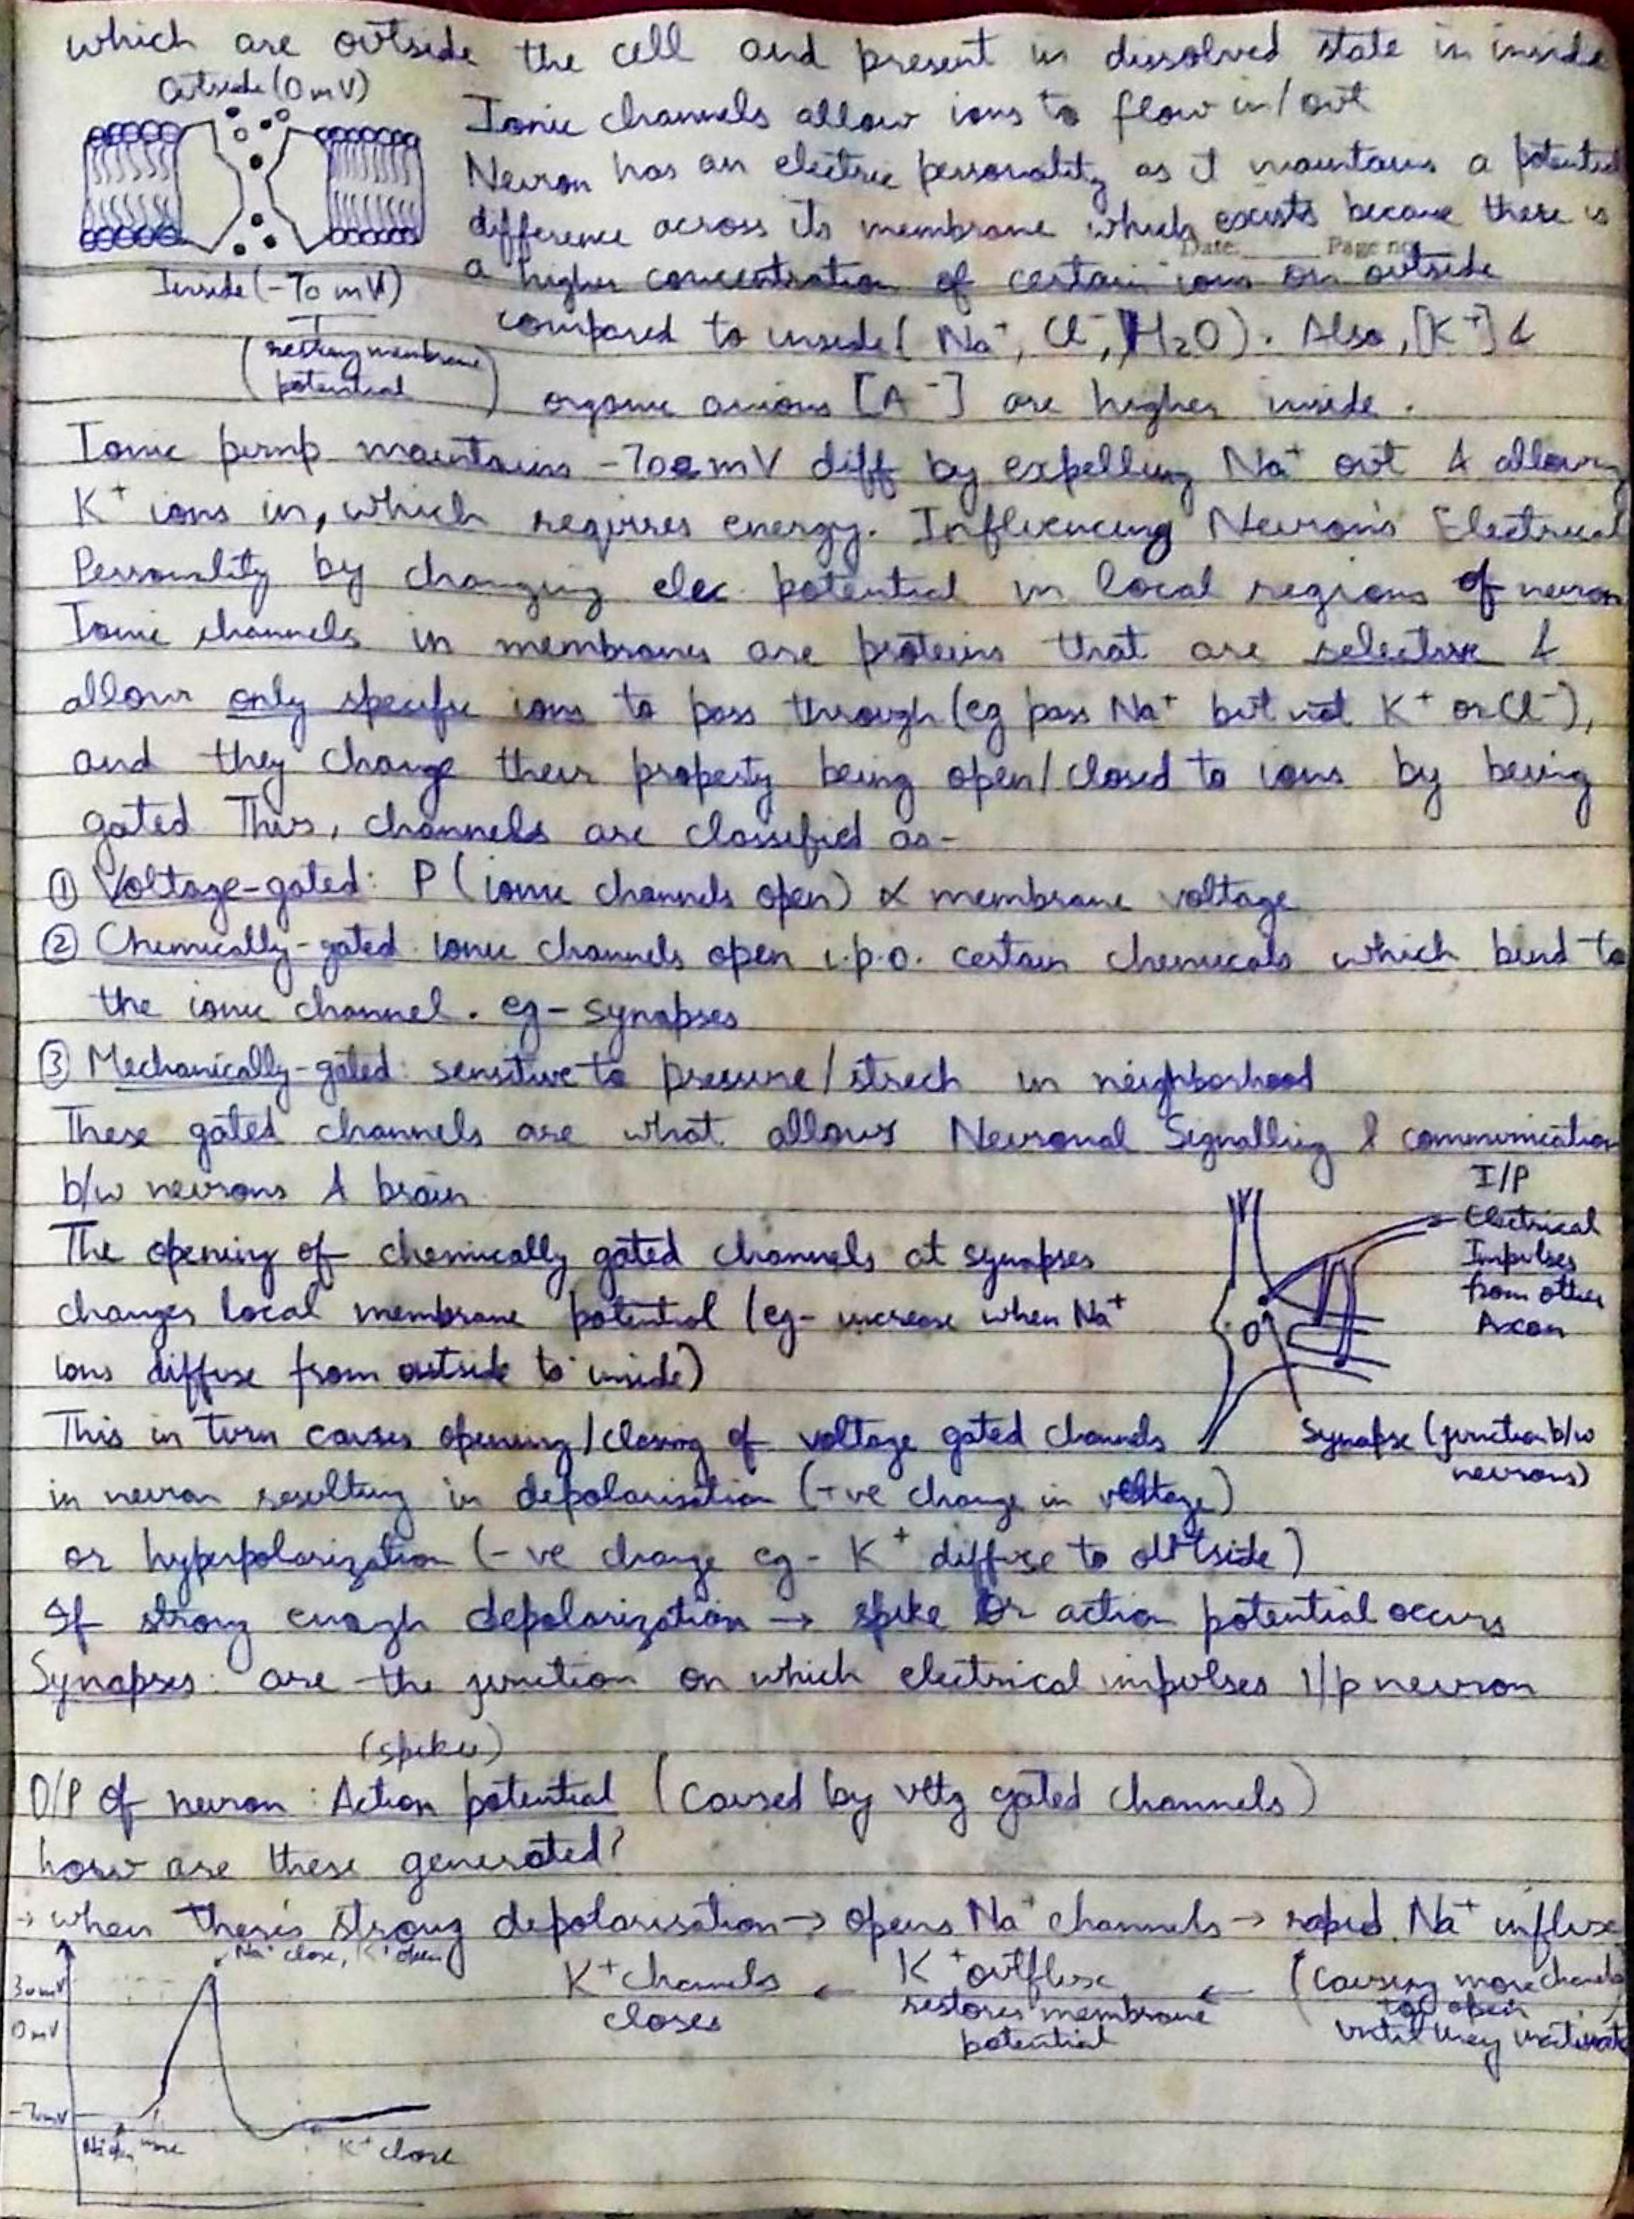 which are outside the cell and present in dissolved state in inside
Outside (0 mV)
Inside (-70 mV)
(resting membrane potential)
Ionic channels allow ions to flow in/out
Neuron has an electric personality as it maintains a potential
difference across its membrane which exists because there is
Date. Page no.
a higher concentration of certain ions on outside
compared to inside (Na⁺, Cl⁻, H₂O). Also, [K⁺] &
organic anions [A⁻] are higher inside.
Ionic pump maintains -70 mV diff by expelling Na⁺ out & allowing
K⁺ ions in, which requires energy. Influencing Neuron's Electrical
Personality by changing elec. potential in local regions of neuron
Ionic channels in membranes are proteins that are selective &
allow only specific ions to pass through (eg pass Na⁺ but not K⁺ or Cl⁻),
and they change their property being open/closed to ions by being
gated Thus, channels are classified as-
① Voltage-gated: P (ionic channels open) ∝ membrane voltage
② Chemically-gated ionic channels open i.p.o. certain chemicals which bind to
the ionic channel. eg- synapses
③ Mechanically-gated: sensitive to pressure/strech in neighborhood
These gated channels are what allows Neuronal Signalling & communication
b/w neurons & brain
The opening of chemically gated channels at synapses
changes local membrane potential (eg- increase when Na⁺
ions diffuse from outside to inside)
I/P
Electrical
Impulses
from other
Axon
Synapse (junction b/w
neurons)
This in turn causes opening/closing of voltage gated channels
in neuron resulting in depolarisation (+ve change in voltage)
or hyperpolarization (-ve change eg- K⁺ diffuse to outside)
If strong enough depolarization → spike or action potential occurs
Synapses: are the junction on which electrical impulses i/p neuron
(spikes)
O/P of neuron: Action potential (Caused by vltg gated channels)
how are these generated?
→ when there's strong depolarisation → opens Na⁺ channels → rapid Na⁺ influx
(causing more channels
to open
until they inactivate)
← K⁺ outflux
restores membrane
potential
← K⁺ channels
closes
Na⁺ close, K⁺ open
30 mV
0 mV
-70 mV
more
K⁺ close